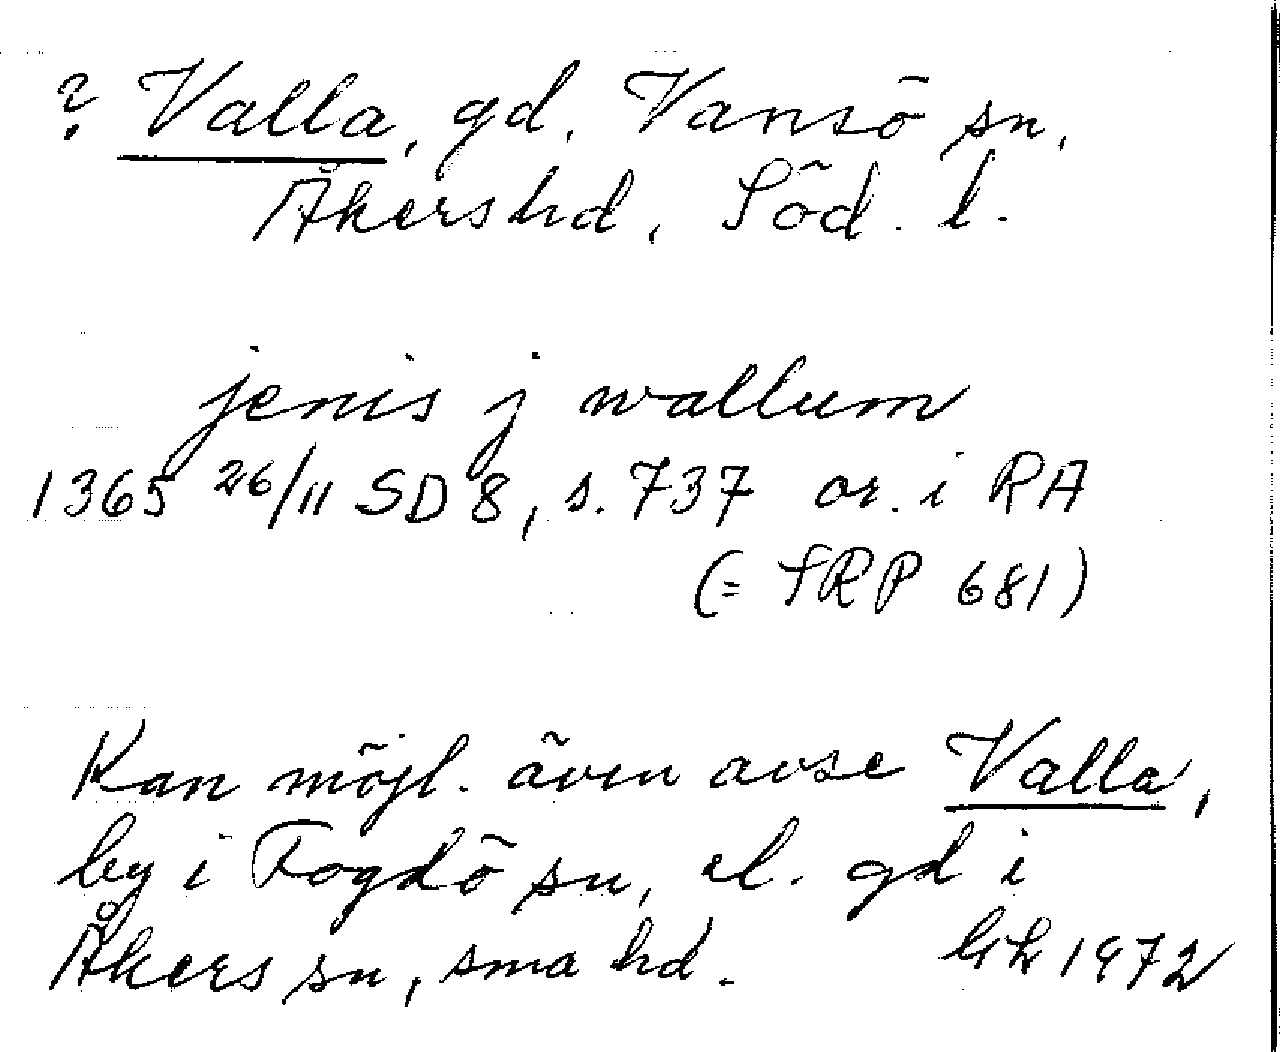 ? Valla, gd, Vansö sn,
Åkers hd, Söd. l.
jenis j wallum
1365 26/11 SD 8, s. 737 or. i RA
(= SRP 681)
Kan möjl. även avse Valla,
by i Fogdö sn, el. gd i
Åkers sn, sma hd. 1972